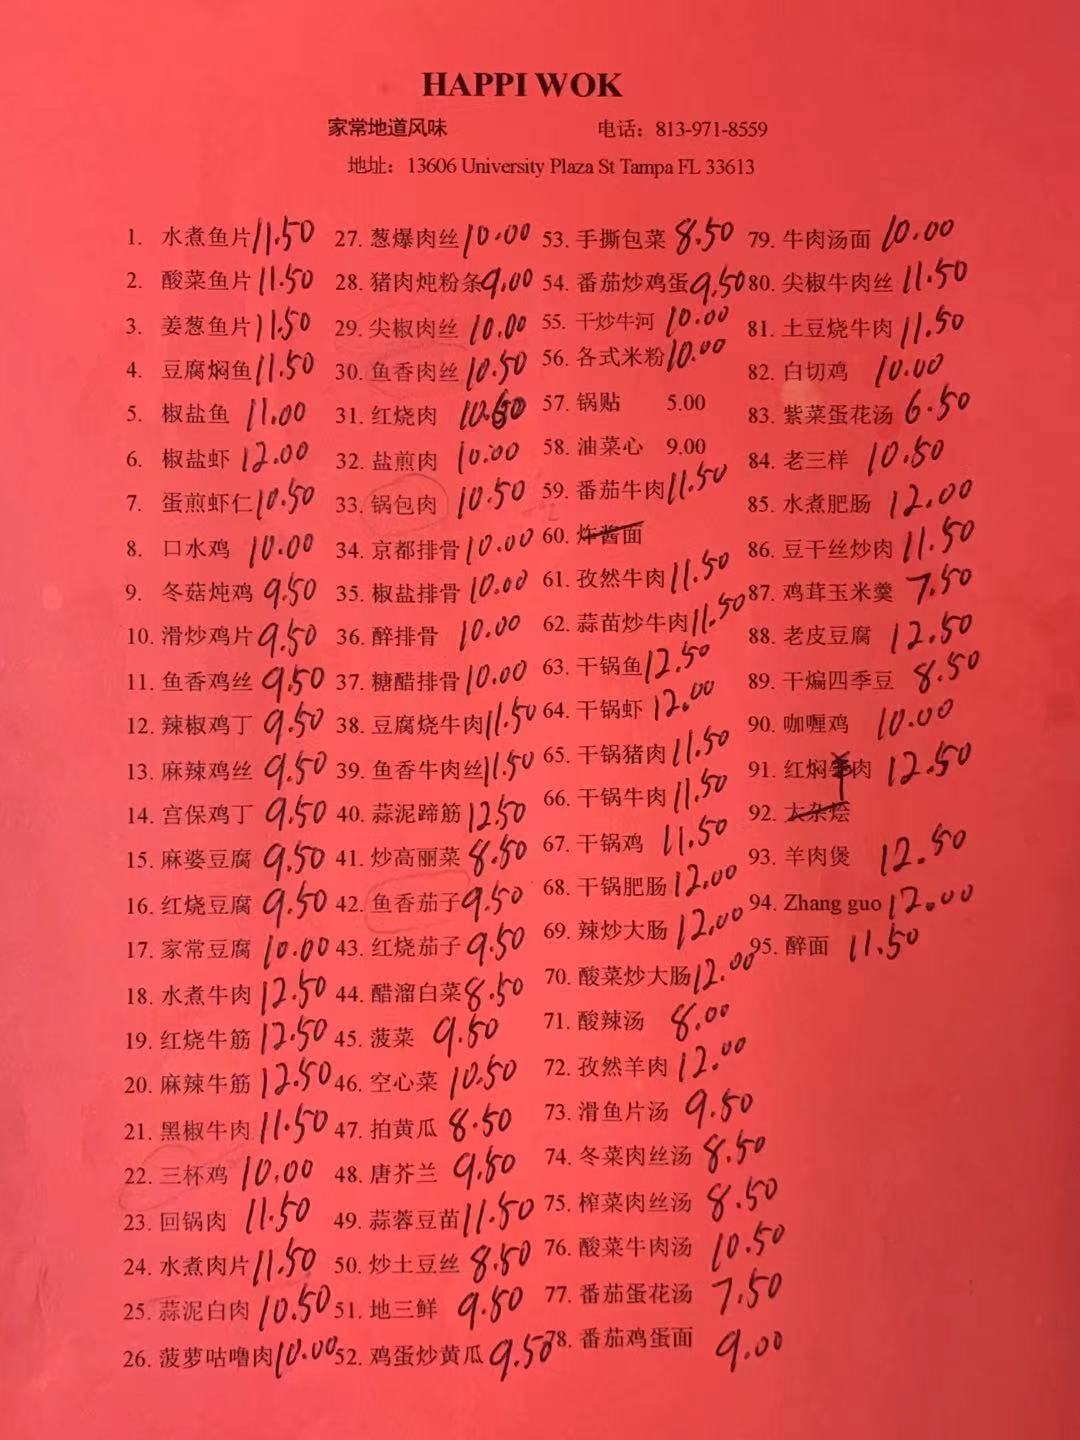 HAPPI WOK
家常地道风味 电话：813-971-8559
地址：13606 University Plaza St Tampa FL 33613
1. 水煮鱼片 11.50
2. 酸菜鱼片 11.50
3. 姜葱鱼片 11.50
4. 豆腐焖鱼 11.50
5. 椒盐鱼 11.00
6. 椒盐虾 12.00
7. 蛋煎虾仁 10.50
8. 口水鸡 10.00
9. 冬菇炖鸡 9.50
10. 滑炒鸡片 9.50
11. 鱼香鸡丝 9.50
12. 辣椒鸡丁 9.50
13. 麻辣鸡丝 9.50
14. 宫保鸡丁 9.50
15. 麻婆豆腐 9.50
16. 红烧豆腐 9.50
17. 家常豆腐 10.00
18. 水煮牛肉 12.50
19. 红烧牛筋 12.50
20. 麻辣牛筋 12.50
21. 黑椒牛肉 11.50
22. 三杯鸡 10.00
23. 回锅肉 11.50
24. 水煮肉片 11.50
25. 蒜泥白肉 10.50
26. 菠萝咕噜肉 10.00
27. 葱爆肉丝 10.00
28. 猪肉炖粉条 9.00
29. 尖椒肉丝 10.00
30. 鱼香肉丝 10.50
31. 红烧肉 10.50
32. 盐煎肉 10.00
33. 锅包肉 10.50
34. 京都排骨 10.00
35. 椒盐排骨 10.00
36. 醉排骨 10.00
37. 糖醋排骨 10.00
38. 豆腐烧牛肉 11.50
39. 鱼香牛肉丝 11.50
40. 蒜泥蹄筋 12.50
41. 炒高丽菜 8.50
42. 鱼香茄子 9.50
43. 红烧茄子 9.50
44. 醋溜白菜 8.50
45. 菠菜 9.50
46. 空心菜 10.50
47. 拍黄瓜 8.50
48. 唐芥兰 9.50
49. 蒜蓉豆苗 11.50
50. 炒土豆丝 8.50
51. 地三鲜 9.50
52. 鸡蛋炒黄瓜 9.50
53. 手撕包菜 8.50
54. 番茄炒鸡蛋 9.50
55. 干炒牛河 10.00
56. 各式米粉 10.00
57. 锅贴 5.00
58. 油菜心 9.00
59. 番茄牛肉 11.50
60. 炸酱面
61. 孜然牛肉 11.50
62. 蒜苗炒牛肉 11.50
63. 干锅鱼 12.50
64. 干锅虾 12.00
65. 干锅猪肉 11.50
66. 干锅牛肉 11.50
67. 干锅鸡 11.50
68. 干锅肥肠 12.00
69. 辣炒大肠 12.00
70. 酸菜炒大肠 12.00
71. 酸辣汤 8.00
72. 孜然羊肉 12.00
73. 滑鱼片汤 9.50
74. 冬菜肉丝汤 8.50
75. 榨菜肉丝汤 8.50
76. 酸菜牛肉汤 10.50
77. 番茄蛋花汤 7.50
78. 番茄鸡蛋面 9.00
79. 牛肉汤面 10.00
80. 尖椒牛肉丝 11.50
81. 土豆烧牛肉 11.50
82. 白切鸡 10.00
83. 紫菜蛋花汤 6.50
84. 老三样 10.50
85. 水煮肥肠 12.00
86. 豆干丝炒肉 11.50
87. 鸡茸玉米羹 7.50
88. 老皮豆腐 12.50
89. 干煸四季豆 8.50
90. 咖喱鸡 10.00
91. 红焖羊肉 12.50
92. 大杂烩
93. 羊肉煲 12.50
94. Zhang guo 12.00
95. 醉面 11.50